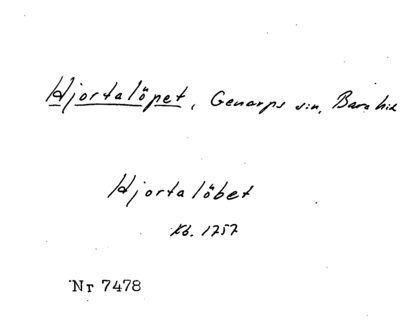 Hjortalöpet, Genarps sn, Bara hd
Hjortalöbet
Kb. 1757
Nr 7478